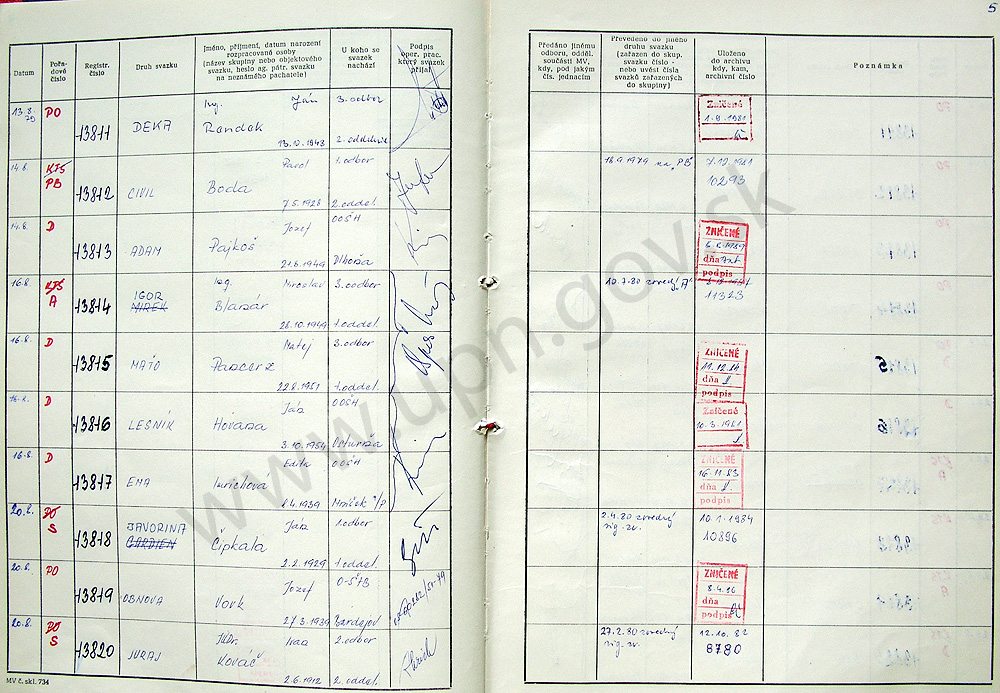 5
Datum
Pořa-
dové
číslo
Registr.
číslo
Druh svazku
Jméno, příjmení, datum narození
rozpracované osoby
(název skupiny nebo objektového
svazku, heslo ag. pátr. svazku
na neznámého pachatele)
U koho se
svazek
nachází
Podpis
oper. prac.
který svazek
přijal
Předáno jinému
odboru, odděl.
součásti MV,
kdy, pod jakým
čís. jednacím
Převedeno do jiného
druhu svazku
(zařazen do skup.
svazku číslo -
nebo uvést čísla
svazků zařazených
do skupiny)
Uloženo
do archivu
kdy, kam,
archivní číslo
Poznámka
13.8.
79
PO
13811
DEKA
Ing. Ján
Randak
3. odbor
Zničené
1.9.1981
14.8.
KTS
PB
13812
CIVIL
Pavol
Boda
7.5.1928
1. odbor
2. oddel.
18.9.1979 na PB
7.12.1981
10293
14.8.
D
13813
ADAM
Jozef
Pajkoš
21.8.1949
OOŠH
ZNIČENÉ
dňa
podpis
16.8.
KTS
A
13814
IGOR
MIREK
Ing. Miroslav
Blanár
28.10.1949
3. odbor
1. oddel.
10.7.80 zvedený "A"
11323
16.8.
D
13815
MATO
Matej
22.8.1951
3. odbor
1. oddel.
ZNIČENÉ
11.12.84
dňa
podpis
16.8.
D
13816
LESNÍK
Ján
3.10.1954
OOŠH
Zničené
10.3.1981
16.8.
D
13817
EMA
Edita
1.4.1939
OOŠH
ZNIČENÉ
16.11.83
dňa
podpis
20.8.
PO
S
13818
JAVORINA
GARDIEN
Ján
Čipkala
2.2.1929
1. odbor
1. oddel.
2.4.80 zvedený
sig. zv.
10.1.1984
10896
20.8.
PO
13819
OBNOVA
Jozef
Vovk
Bardejov
ZNIČENÉ
8.4.86
dňa
podpis
20.8.
PO
S
13820
JURAJ
JUDr. Ivan
Kováč
2.6.1912
2. odbor
2. oddel.
27.2.80 zvedený
sig. zv.
12.10.82
8780
MV č. skl. 734
www.upn.gov.sk